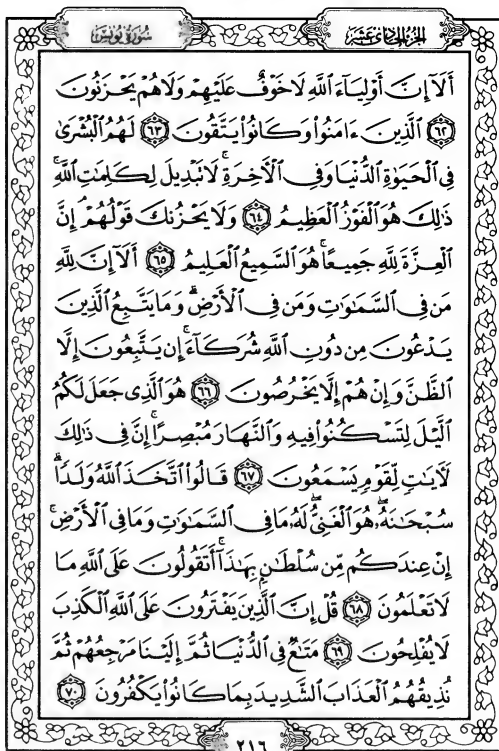 سُورَةُ يُونُسَ
الجزء الحادي عشر
أَلَآ إِنَّ أَوْلِيَآءَ ٱللَّهِ لَا خَوْفٌ عَلَيْهِمْ وَلَا هُمْ يَحْزَنُونَ
﴿٦٢﴾ ٱلَّذِينَ ءَامَنُوا۟ وَكَانُوا۟ يَتَّقُونَ ﴿٦٣﴾ لَهُمُ ٱلْبُشْرَىٰ
فِى ٱلْحَيَوٰةِ ٱلدُّنْيَا وَفِى ٱلْـَٔاخِرَةِ ۚ لَا تَبْدِيلَ لِكَلِمَـٰتِ ٱللَّهِ ۚ
ذَٰلِكَ هُوَ ٱلْفَوْزُ ٱلْعَظِيمُ ﴿٦٤﴾ وَلَا يَحْزُنكَ قَوْلُهُمْ ۘ إِنَّ
ٱلْعِزَّةَ لِلَّهِ جَمِيعًا ۚ هُوَ ٱلسَّمِيعُ ٱلْعَلِيمُ ﴿٦٥﴾ أَلَآ إِنَّ لِلَّهِ
مَن فِى ٱلسَّمَـٰوَٰتِ وَمَن فِى ٱلْأَرْضِ ۗ وَمَا يَتَّبِعُ ٱلَّذِينَ
يَدْعُونَ مِن دُونِ ٱللَّهِ شُرَكَآءَ ۚ إِن يَتَّبِعُونَ إِلَّا
ٱلظَّنَّ وَإِنْ هُمْ إِلَّا يَخْرُصُونَ ﴿٦٦﴾ هُوَ ٱلَّذِى جَعَلَ لَكُمُ
ٱلَّيْلَ لِتَسْكُنُوا۟ فِيهِ وَٱلنَّهَارَ مُبْصِرًا ۚ إِنَّ فِى ذَٰلِكَ
لَـَٔايَـٰتٍ لِّقَوْمٍ يَسْمَعُونَ ﴿٦٧﴾ قَالُوا۟ ٱتَّخَذَ ٱللَّهُ وَلَدًا ۗ
سُبْحَـٰنَهُۥ ۖ هُوَ ٱلْغَنِىُّ ۖ لَهُۥ مَا فِى ٱلسَّمَـٰوَٰتِ وَمَا فِى ٱلْأَرْضِ ۚ
إِنْ عِندَكُم مِّن سُلْطَـٰنٍۭ بِهَـٰذَآ ۚ أَتَقُولُونَ عَلَى ٱللَّهِ مَا
لَا تَعْلَمُونَ ﴿٦٨﴾ قُلْ إِنَّ ٱلَّذِينَ يَفْتَرُونَ عَلَى ٱللَّهِ ٱلْكَذِبَ
لَا يُفْلِحُونَ ﴿٦٩﴾ مَتَـٰعٌ فِى ٱلدُّنْيَا ثُمَّ إِلَيْنَا مَرْجِعُهُمْ ثُمَّ
نُذِيقُهُمُ ٱلْعَذَابَ ٱلشَّدِيدَ بِمَا كَانُوا۟ يَكْفُرُونَ ﴿٧٠﴾
٢١٦